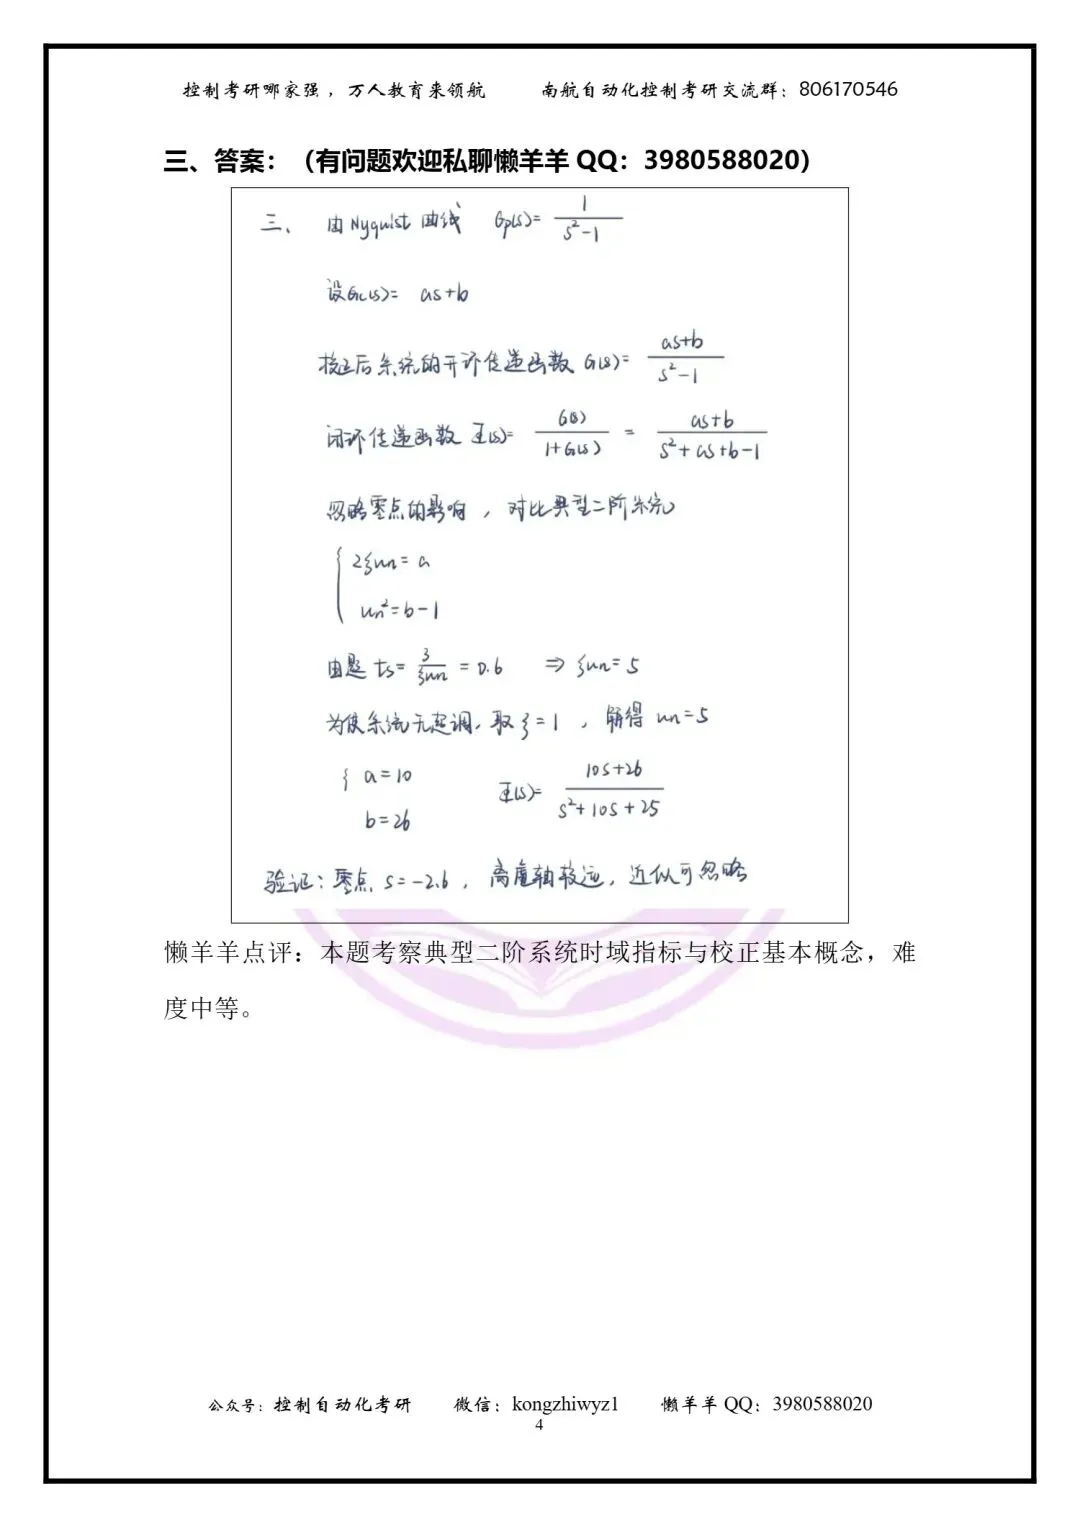 控制考研哪家强，万人教育来领航 南航自动化控制考研交流群：806170546
三、答案：（有问题欢迎私聊懒羊羊 QQ：3980588020）
三、 由Nyquist 曲线 Gp(s)= 1/(s²-1)
设Gc(s)= as+b
校正后系统的开环传递函数 G(s)= (as+b)/(s²-1)
闭环传递函数 Φ(s)= G(s)/(1+G(s)) = (as+b)/(s²+as+b-1)
忽略零点的影响，对比典型二阶系统
{ 2ξωn= a
ωn²=b-1
由题 ts= 3/(ξωn) = 0.6 ⇒ ξωn= 5
为使系统无超调，取ξ=1，解得 ωn=5
{ a=10
b=26
Φ(s)= (10s+26)/(s²+10s+25)
验证：零点 s=-2.6，离虚轴较远，近似可忽略
懒羊羊点评：本题考察典型二阶系统时域指标与校正基本概念，难
度中等。
公众号：控制自动化考研 微信：kongzhiwyz1 懒羊羊 QQ：3980588020
4